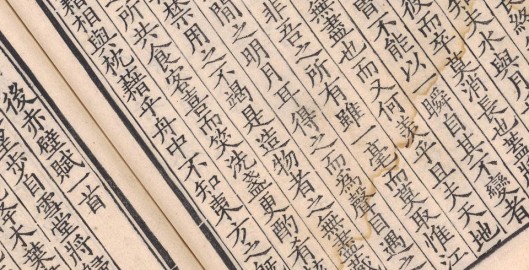 夫水與月
彼而卒莫消長也蓋
不能以一瞬自其不變者
無盡也而又何羨乎且夫天
非吾之所有雖一毫而莫取惟江
間之明月耳得之而為聲目遇之
禁用之不竭是造物者之無盡藏
所共食客喜而笑洗盞更酌肴
藉相與枕藉乎舟中不知東方之既
後赤壁賦一首
步自雪堂將
木葉